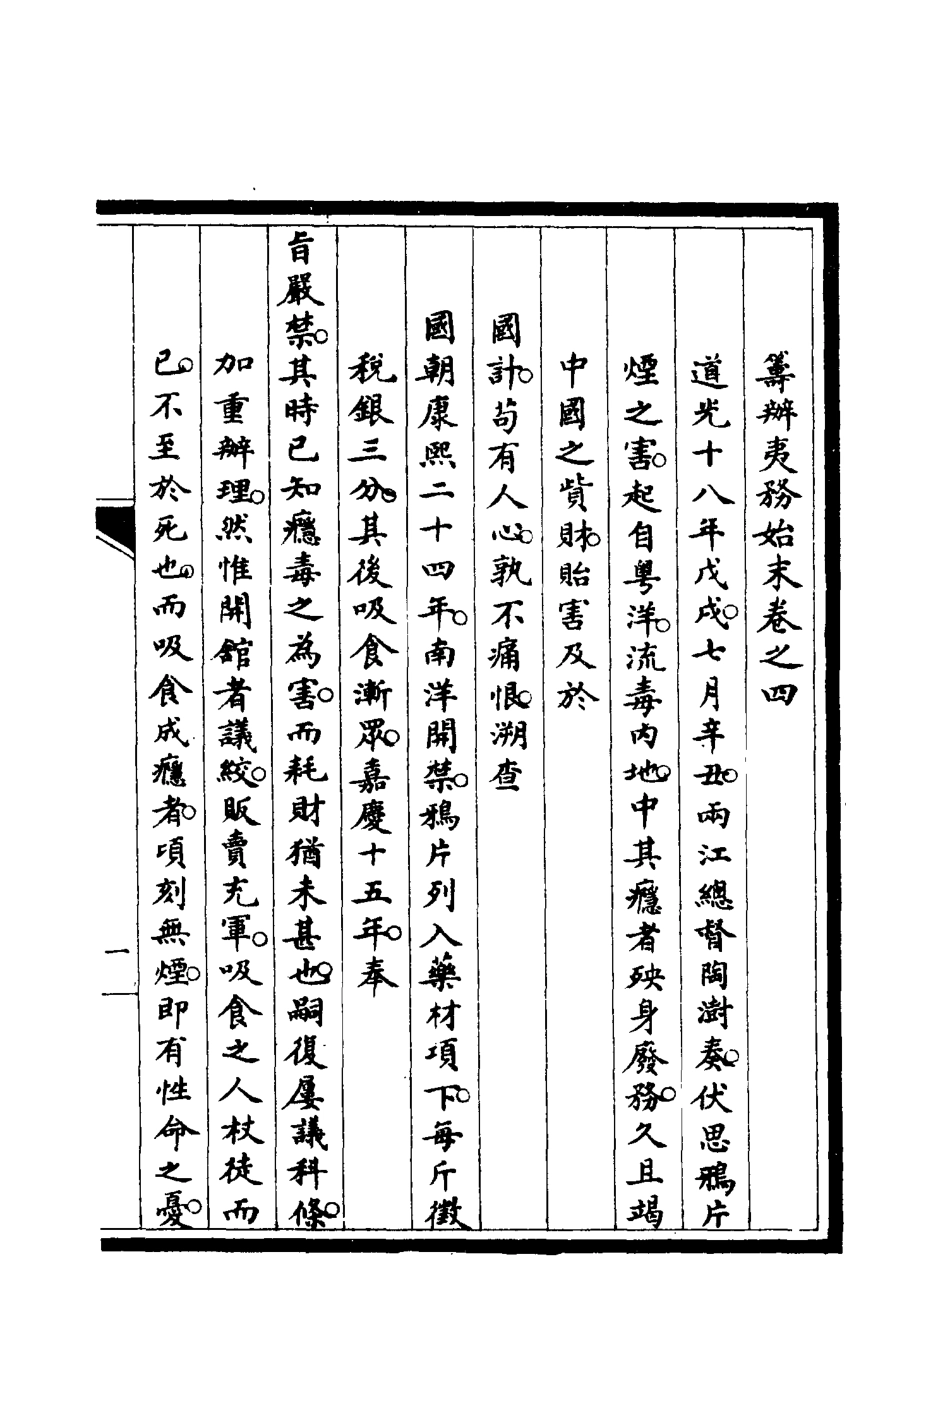 籌辦夷務始末卷之四
道光十八年戊戌。七月辛丑。兩江總督陶澍奏。伏思鴉片
煙之害。起自粵洋。流毒內地。中其癮者殃身廢務。久且竭
中國之貲財。貽害及於
國計。苟有人心。孰不痛恨。溯查
國朝康熙二十四年。南洋開禁。鴉片列入藥材項下。每斤徵
稅銀三分。其後吸食漸眾。嘉慶十五年。奉
旨嚴禁。其時已知癮毒之為害。而耗財猶未甚也。嗣復屢議科條。
加重辦理。然惟開館者議絞。販賣充軍。吸食之人杖徒而
已。不至於死也。而吸食成癮者。頃刻無煙。即有性命之憂。
一